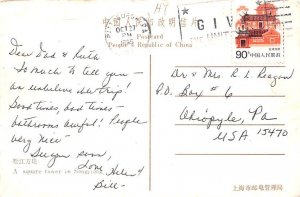 Postcard
People's Republic of China
Dear Dad & Ruth
So much to tell you -
an unbelievable trip!
Good times, bad times -
bathrooms awful! People
very nice -
See you soon,
Love Helen &
Bill -
A square tower in Songjiang
OCT 27
PM
GIV
90分 中国人民邮政
Dr & Mrs R. L. Ragon
P.O. Box # 6
Ohiopyle, Pa
USA 15470
上海市邮电管理局